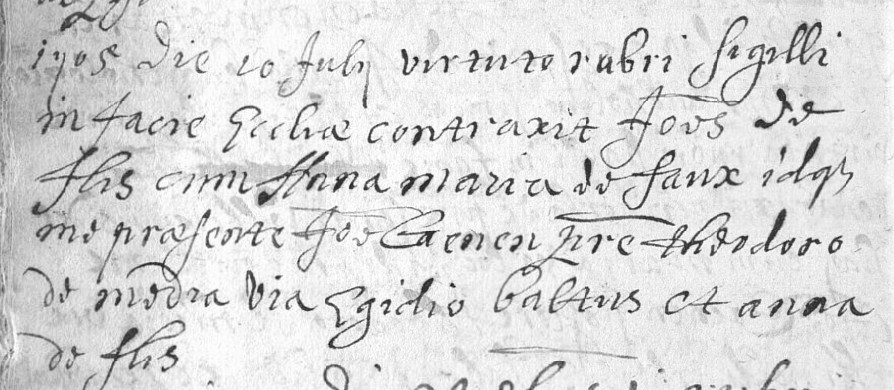 1705 die 10 Julij virtute rubri sigilli
in facie Eccliæ contraxit Joēs de
flis cum Anna maria de faux idq3
me præsente Joē Caenen pre theodoro
de media via Egidio baltus et anna
de flis